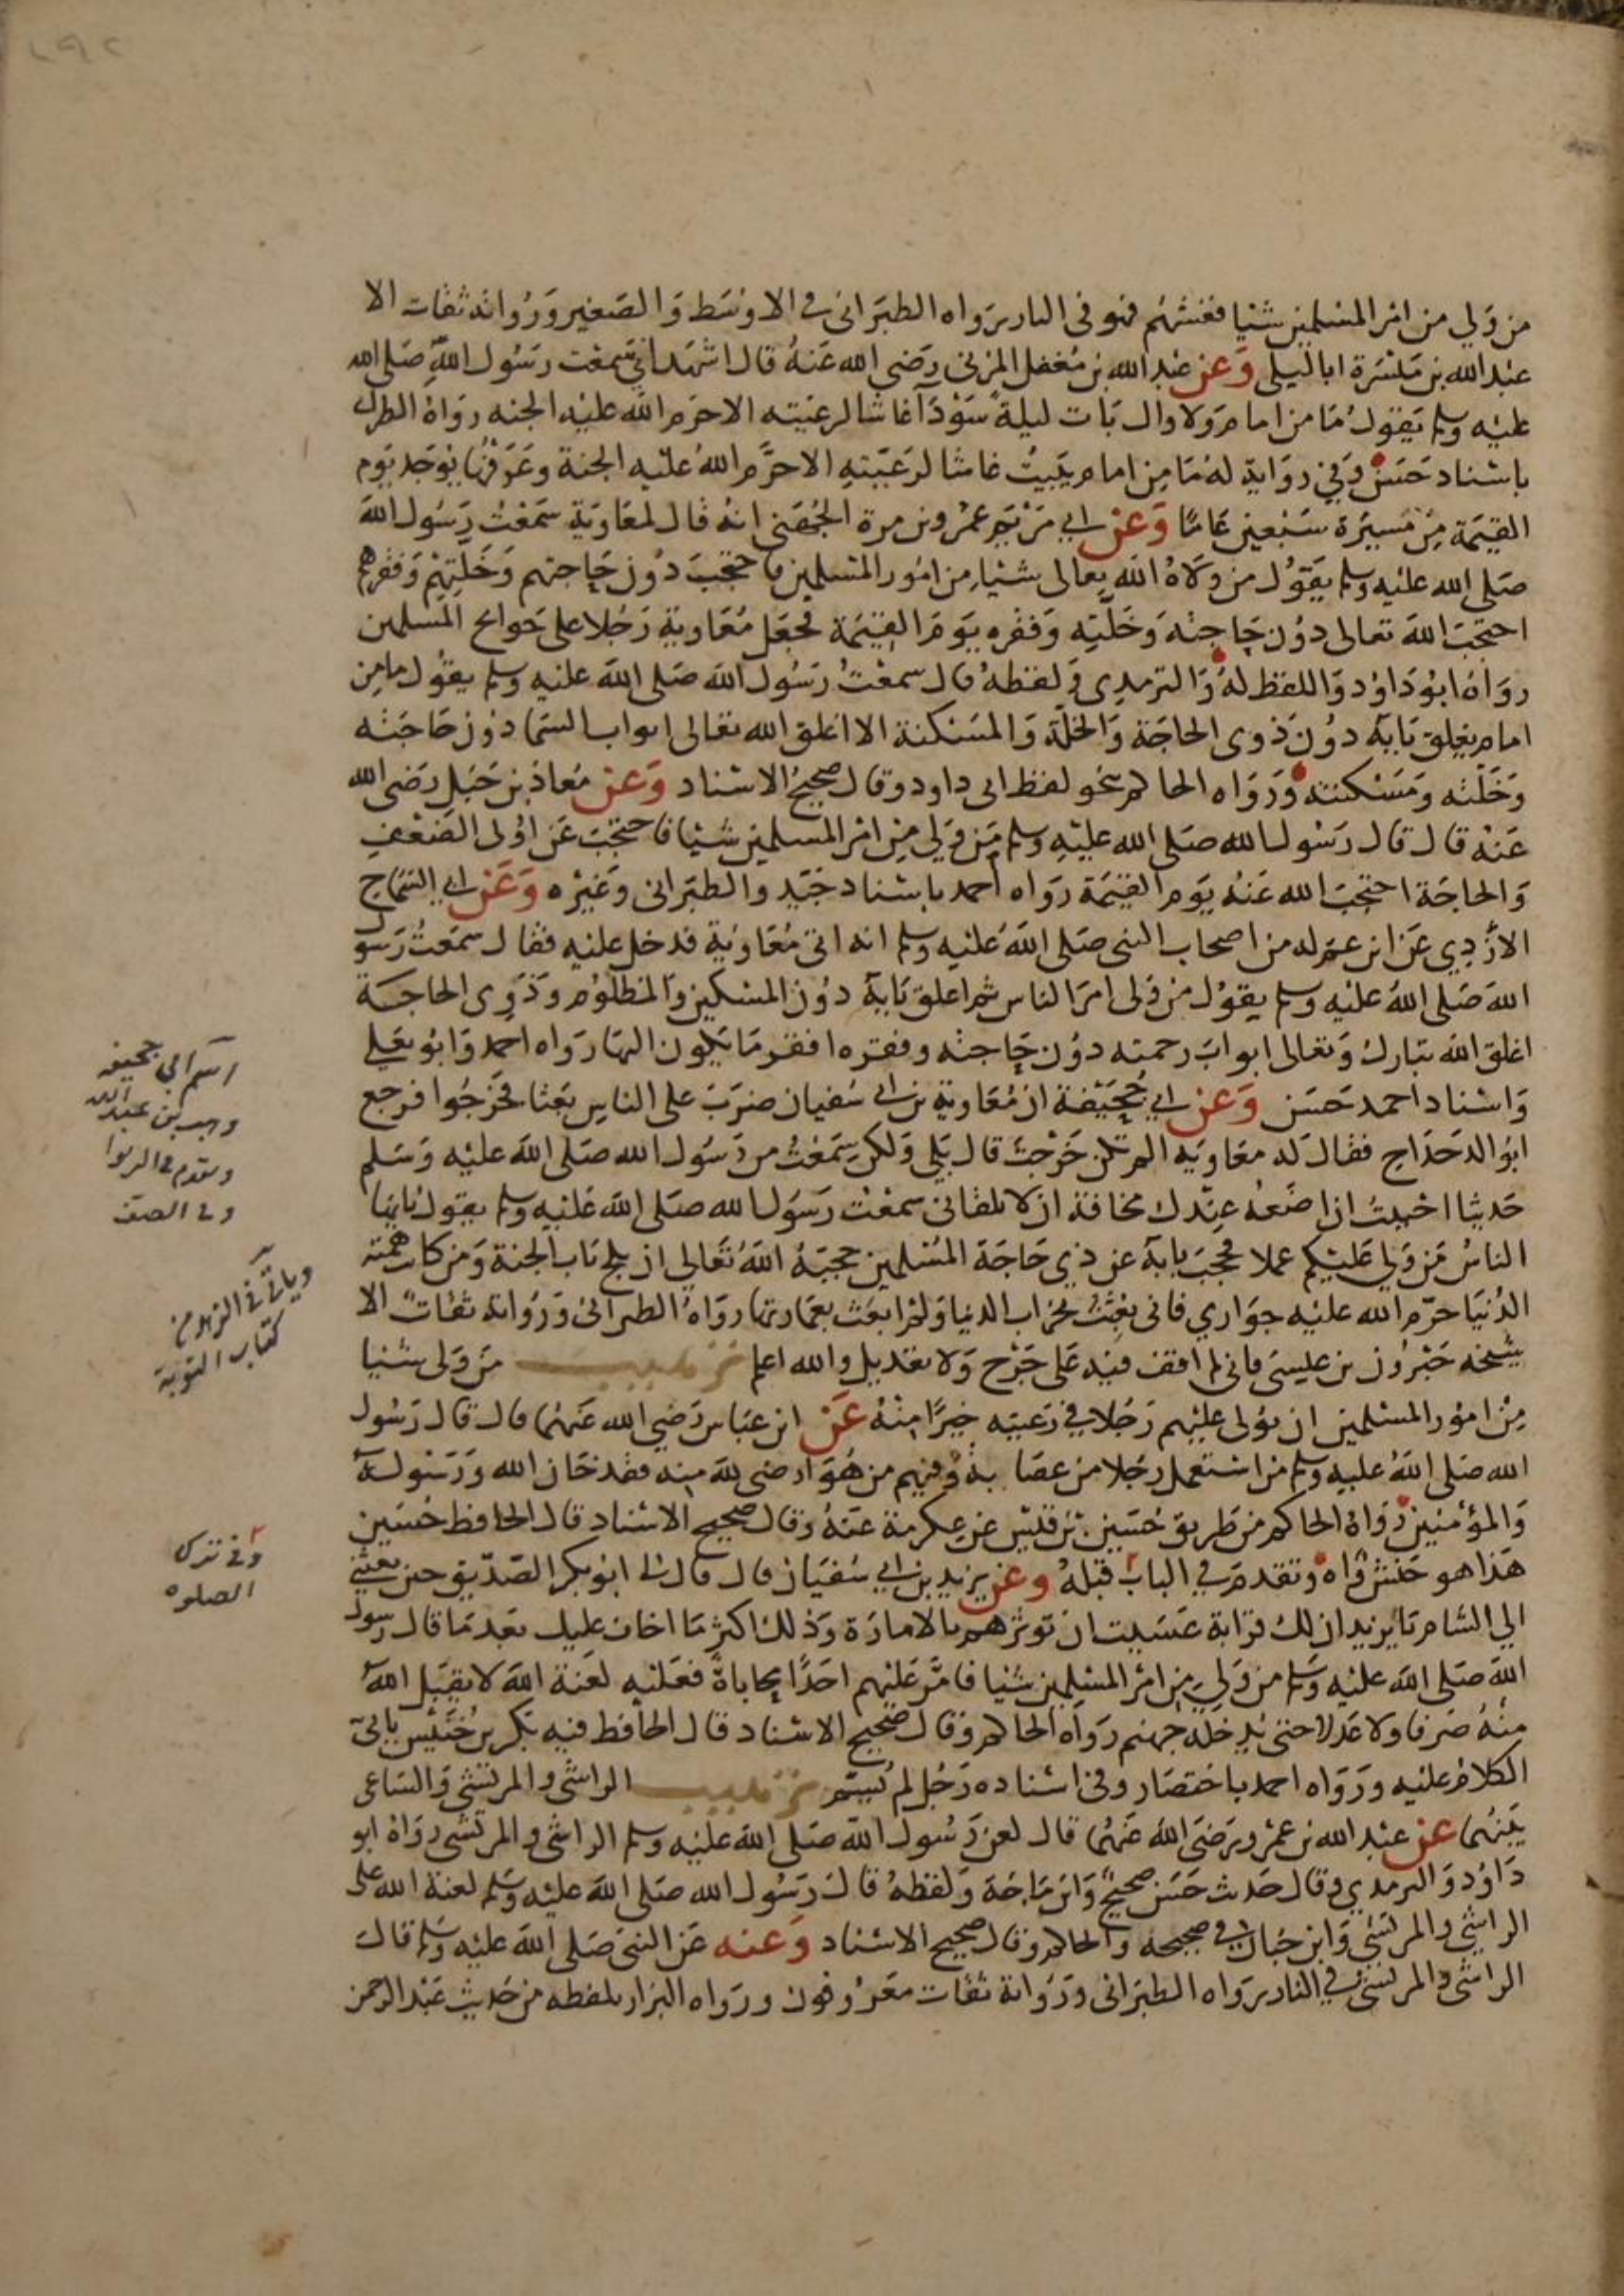 من ولي من امر المسلمين شيا فغشهم فهو في النار رواه الطبراني في الاوسط والصغير ورواته ثقات الا
عبد الله بن ميسرة ابا ليلى وعن عبد الله بن مغفل المزني رضي الله عنه قال اشهد اني سمعت رسول الله صلى الله
عليه وسلم يقول ما من امام ولا وال بات ليلة سودآ غاشا لرعيته الا حرم الله عليه الجنه رواه الطبراني
باسناد حسن وفي رواية له ما من امام يبيت غاشا لرعيته الا حرم الله عليه الجنة وعرفها يوجد يوم
القيمة من مسيرة سبعين عاما وعن ابي مريم عمرو بن مرة الجهني انه قال لمعاوية سمعت رسول الله
صلى الله عليه وسلم يقول من ولاه الله تعالى شيا من امور المسلمين فاحتجب دون حاجتهم وخلتهم وفقرهم
احتجب الله تعالى دون حاجته وخلته وفقره يوم القيمة فجعل معاوية رجلا على حوائج المسلمين
رواه ابو داود واللفظ له والترمذي ولفظه قال سمعت رسول الله صلى الله عليه وسلم يقول ما من
امام يغلق بابه دون ذوى الحاجة والخلة والمسكنة الا اغلق الله تعالى ابواب السما دون حاجته
وخلته ومسكنته ورواه الحاكم بنحو لفظ ابى داود وقال صحيح الاسناد وعن معاذ بن جبل رضى الله
عنه قال قال رسول الله صلى الله عليه وسلم من ولي من امر المسلمين شيا فاحتجب عن اولى الضعف
والحاجة احتجب الله عنه يوم القيمة رواه احمد باسناد جيد والطبراني وغيره وعن ابي السماح
الأزدي عن ابن عم له من اصحاب النبي صلى الله عليه وسلم انه اتى معاوية فدخل عليه فقال سمعت رسول
الله صلى الله عليه وسلم يقول من ولى امر الناس ثم اغلق بابه دون المسكين والمظلوم وذوى الحاجة
اغلق الله تبارك وتعالى ابواب رحمته دون حاجته وفقره افقر ما يكون اليها رواه احمد وابو يعلى
واسناد احمد حسن وعن ابي جحيفة ان معاوية بن ابي سفيان ضرب على الناس بعثا فخرجوا فرجع
ابو الدحداح فقال له معاويه الم تكن خرجت قال بلى ولكن سمعت من رسول الله صلى الله عليه وسلم
حديثا احببت ان اضعه عندك مخافة ان لا تلقاني سمعت رسول الله صلى الله عليه وسلم يقول يا ايها
الناس من ولي عليكم عملا فحجب بابه عن ذي حاجة المسلمين حجبه الله تعالى ان يلج باب الجنة ومن كانت همته
الدنيا حرم الله عليه جوارى فانى بعثت بخراب الدنيا ولم ابعث بعمارتها رواه الطبراني ورواته ثقات الا
شيخه جبرون بن عليسى فاني لم اقف فيه على جرح ولا تعديل والله اعلم ترهيب من ولى شيئا
من امور المسلمين ان يولى عليهم رجلا في رعيته خيرا منه عن ابن عباس رضي الله عنهما قال قال رسول
الله صلى الله عليه وسلم من استعمل رجلا من عصابة وفيهم من هو ارضى لله منه فقد خان الله ورسوله
والمؤمنين رواه الحاكم من طريق حسين بن قيس عن عكرمة عنه وقال صحيح الاسناد قال الحافظ حسين
هذا هو حنش واه وتقدم في الباب قبله وعن يزيد بن ابي سفيان قال قال لى ابو بكر الصديق حين بعثني
الي الشام يا يزيد ان لك قرابة عسيت ان توثرهم بالامارة وذلك اكثر ما اخاف عليك بعد ما قال رسول
الله صلى الله عليه وسلم من ولي من امر المسلمين شيا فامر عليهم احدا محاباة فعليه لعنة الله لا يقبل الله
منه صرفا ولا عدلا حتى يدخله جهنم رواه الحاكم وقال صحيح الاسناد قال الحافظ فيه بكر بن خنيس ياتى
الكلام عليه ورواه احمد باختصار وفي اسناده رجل لم يسم ترهيب الراشي والمرتشي والساعي
بينهما عن عبد الله بن عمرو رضى الله عنهما قال لعن رسول الله صلى الله عليه وسلم الراشي والمرتشي رواه ابو
داود والترمذي وقال حديث حسن صحيح وابن ماجة ولفظه قال رسول الله صلى الله عليه وسلم لعنة الله على
الراشي والمرتشي وابن حبان في صحيحه والحاكم وقال صحيح الاسناد وعنه عن النبي صلى الله عليه وسلم قال
الراشي والمرتشي في النار رواه الطبراني ورواته ثقات معروفون ورواه البزار بلفظه من حديث عبد الرحمن
اسم ابي جحيفه
وهب بن عبد الله
وتقدم في الربوا
وفي الصف
وياتي في الزهد من
كتاب التوبة
وفي ترك
الصلوه